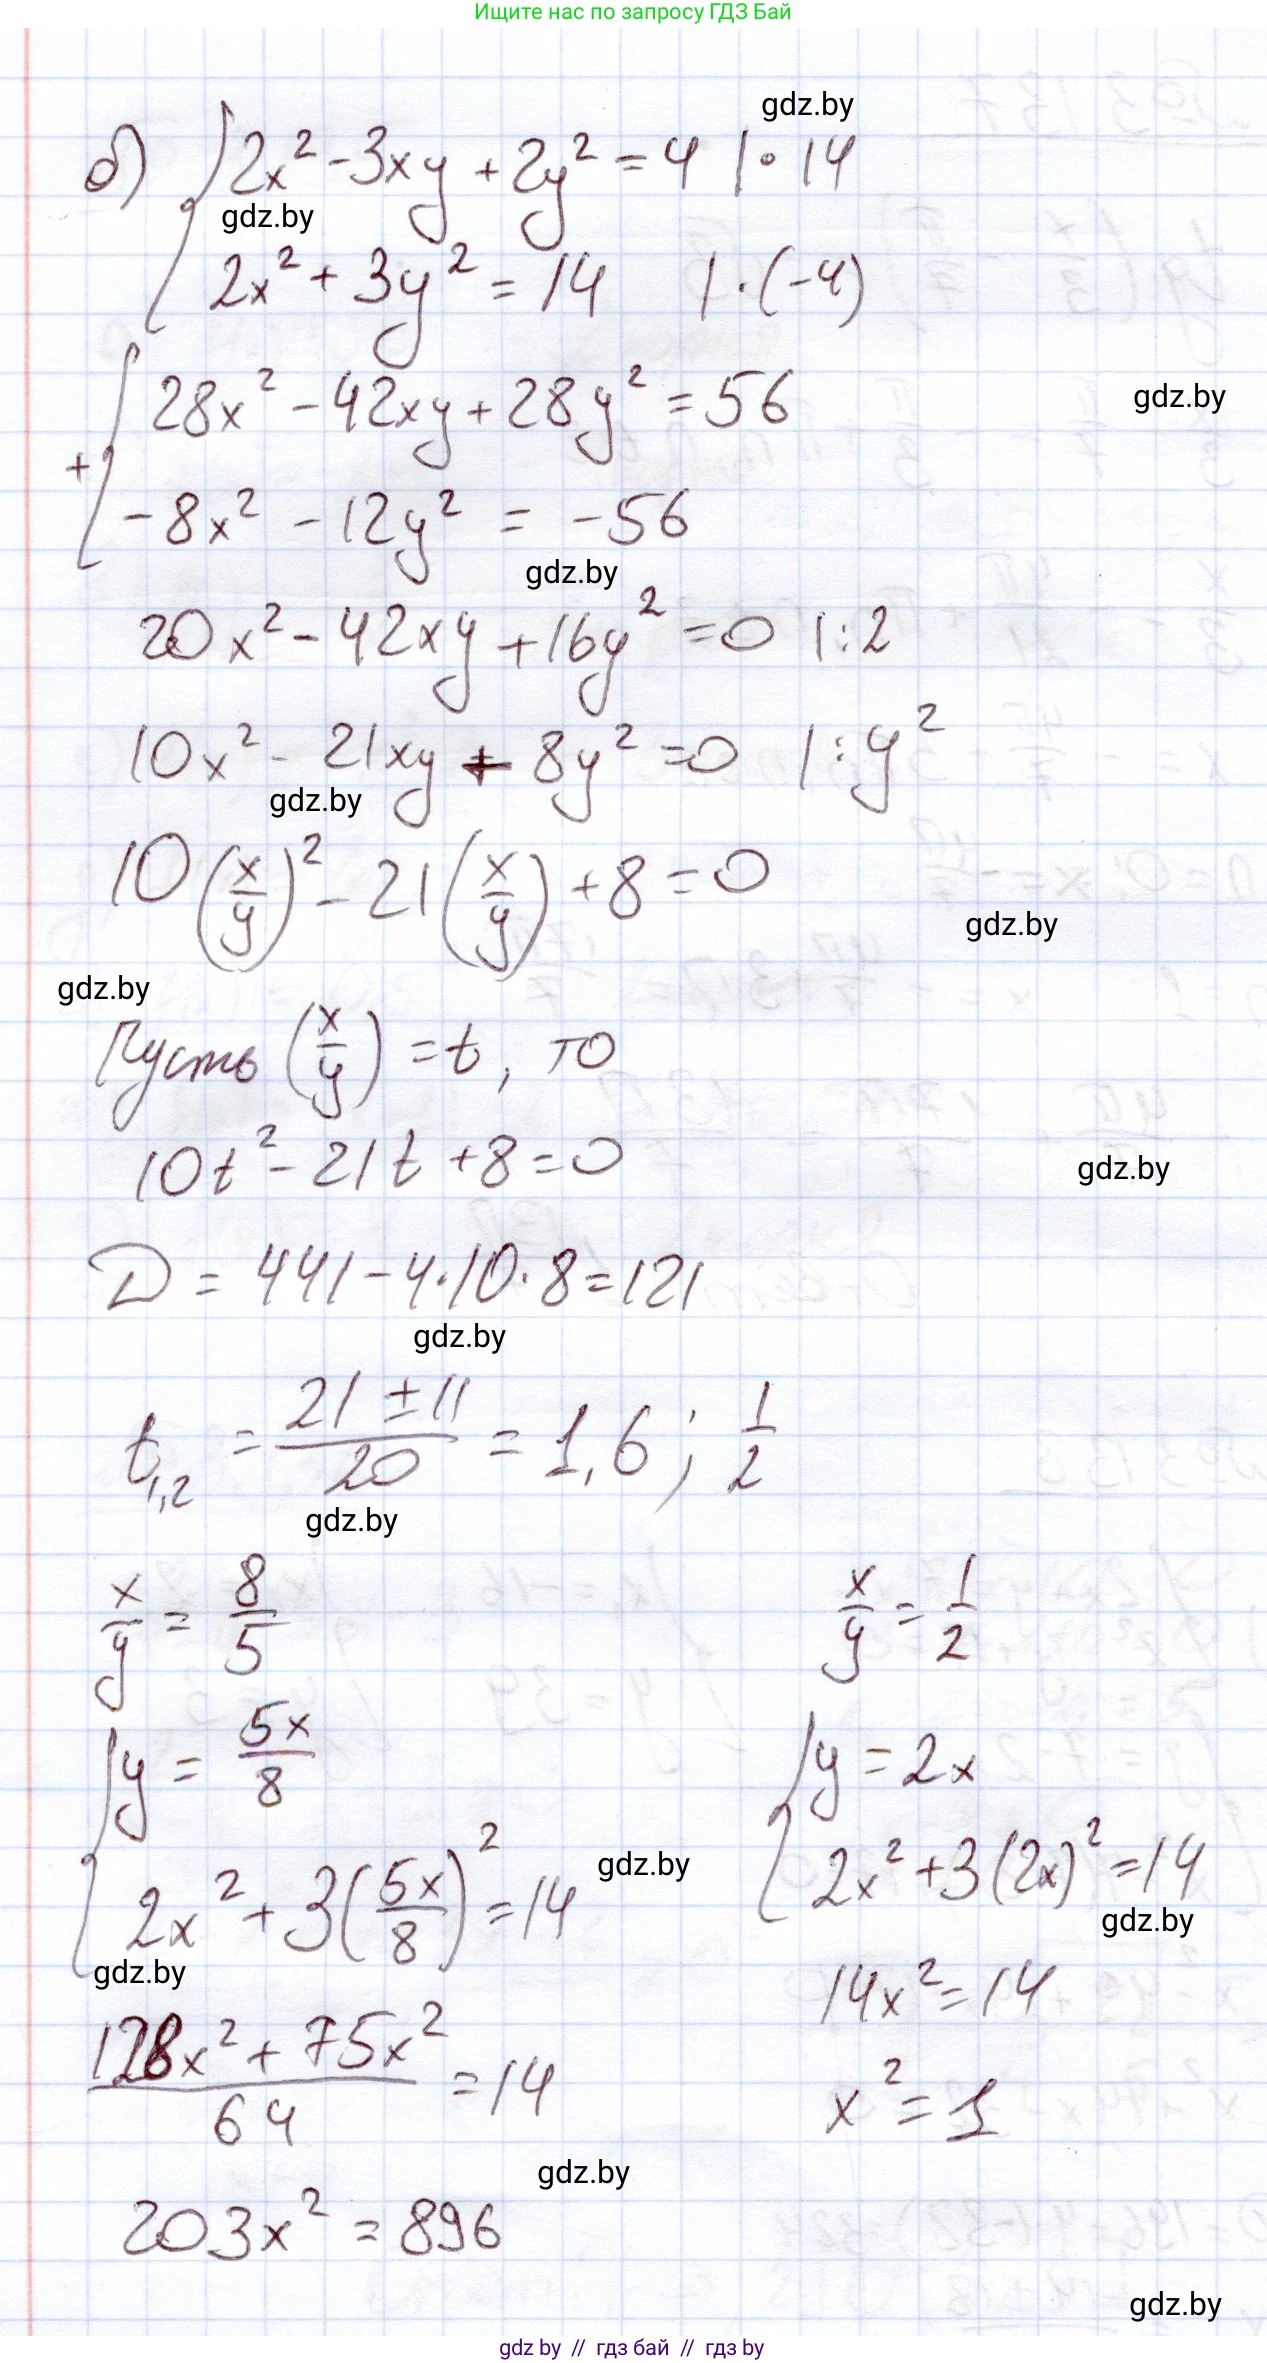 Ищите нас по запросу ГДЗ Бай
gdz.by
б) { 2x² - 3xy + 2y² = 4 | · 14
gdz.by
2x² + 3y² = 14 | · (-4)
gdz.by
+ { 28x² - 42xy + 28y² = 56
-8x² - 12y² = -56
gdz.by
20x² - 42xy + 16y² = 0 | : 2
10x² - 21xy + 8y² = 0 | : y²
gdz.by
10(x/y)² - 21(x/y) + 8 = 0
gdz.by
gdz.by
Пусть (x/y) = t, то
10t² - 21t + 8 = 0
gdz.by
D = 441 - 4·10·8 = 121
gdz.by
t₁,₂ = (21 ± 11)/20 = 1,6; 1/2
gdz.by
x/y = 8/5
{ y = 5x/8
2x² + 3(5x/8)² = 14
gdz.by
gdz.by
(128x² + 75x²)/64 = 14
gdz.by
203x² = 896
x/y = 1/2
{ y = 2x
2x² + 3(2x)² = 14
gdz.by
14x² = 14
x² = 1
gdz.by
gdz by // гдз бай // гдз by